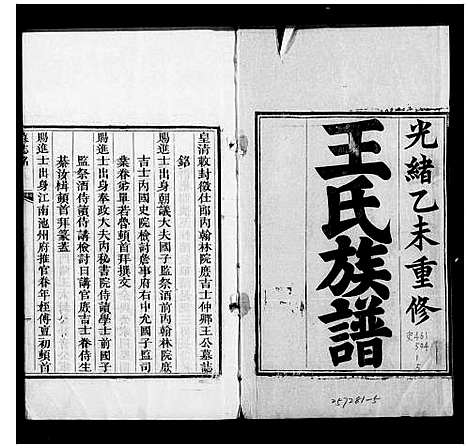 光緒乙未重修
王氏族譜
史461
594
5
257281-5
皇清敕封徵仕郎內翰林院庶吉士仲卿王公墓誌
銘
賜進士出身朝議大夫國子監祭酒前內翰林院庶
吉士內國史院檢討詹事府右中允國子監司
業眷弟單若魯頓首拜撰文
賜進士出身奉政大夫內秘書院侍讀學士前國子
監祭酒侍讀侍講檢討日講官庶吉士眷侍生
綦汝楫頓首拜篆蓋
賜進士出身江南池州府推官眷年姪傅 初頓首
墓誌銘